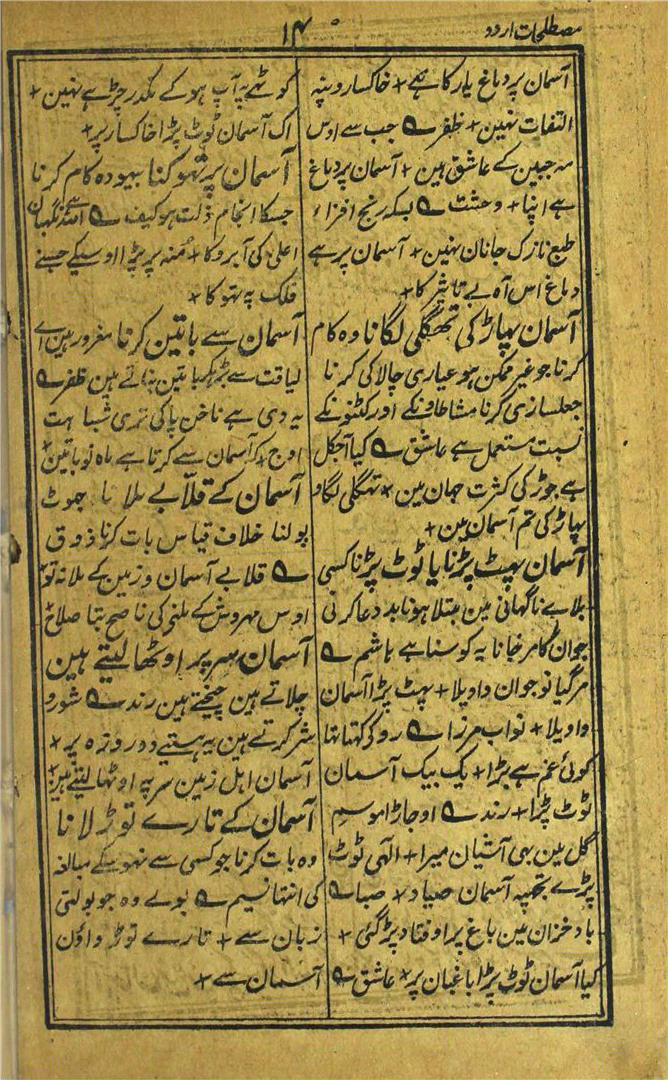 مصطلحات اردو
۱۴
آسمان پر دماغ یار کا ہے + خاکسار و پہ
التفات نہین + ظفر ے جب سے اوس
مہ جبین کے عاشق ہین + آسمان پر دماغ
ہے اپنا + وحشت ے بسکہ رنج افزاء
طبع نازک جانان نہین + آسمان پر ہے
دماغ اس آہ بے تاثیر کا +
آسمان پہاڑ کی تھگلی لگانا وہ کام
کرنا جو غیر ممکن ہو عیاری چالاکی کرنا
جعلسازی کرنا مشاطاونکے اور کٹنونکے
نسبت مستعمل ہے عاشق ے کیا آجکل
ہے جوڑ کی کثرت جہان مین + تھگلی لگاو
پہاڑ کی تم آسمان مین +
آسمان پہٹ پڑنا یا ٹوٹ پڑنا کسی
بلاے ناگہانی مین مبتلا ہونا بد دعا کرنی
جوان کا مرجانا یہ کوسنا ہے ہاشم ے
مرگیا نوجوان واویلا + پہٹ پڑا آسمان
واویلا + نواب مرزا ے رو کر کہتا تہا
کوئی غم ہے بڑا + یک بیک آسمان
ٹوٹ پڑا + رند ے اوجاڑا موسم
گل مین ہی آشیان میرا + الٰہی ٹوٹ
پڑے تجہپہ آسمان صیاد + صبا ے
باد خزان مین باغ پر اوفتاد پڑ گئی +
کیا آسمان ٹوٹ پڑا باغبان پر + عاشق ے
کوٹھے پہ آپ ہو کے مکدر چڑہے نہین +
اک آسمان ٹوٹ پڑا خاکسار پر +
آسمان پر تھوکنا بیہودہ کام کرنا
جسکا انجام ذلت ہو کیف ے اللہ نگہبان
اعلیٰ کی آبرو کا + منہ پر پڑا اوسیکے جسنے
فلک پہ تھوکا +
آسمان سے باتین کرنا مغرور ہین اے
لیاقت سے بڑہکر باتین بناتے ہین ظفر ے
یہ دی ہے ناخن پا کی تری شباہت
اوج + کہ آسمان سے کرتا ہے ماہ نو باتین +
آسمان کے قلابے ملانا جہوٹ
بولنا خلاف قیاس بات کرنا ذوق
ے قلابے آسمان و زمین کے ملا نہ تو +
اوس مہروش کے ملنے کی ناصح بتا صلاح +
آسمان سر پر اوٹھا لیتے ہین
چلاتے ہین چیختے ہین رند ے شور و
شر کرتے ہین یہ ہستیے دو روزہ پر +
آسمان اہل زمین سر پہ اوٹھا لیتے ہین +
آسمان کے تارے توڑ لانا
وہ بات کرنا جو کسی سے نہو سکے مبالغہ
کی انتہا نسیم ے بولے وہ جو بولتی
زبان سے + تارے توڑواون
آسمان سے +